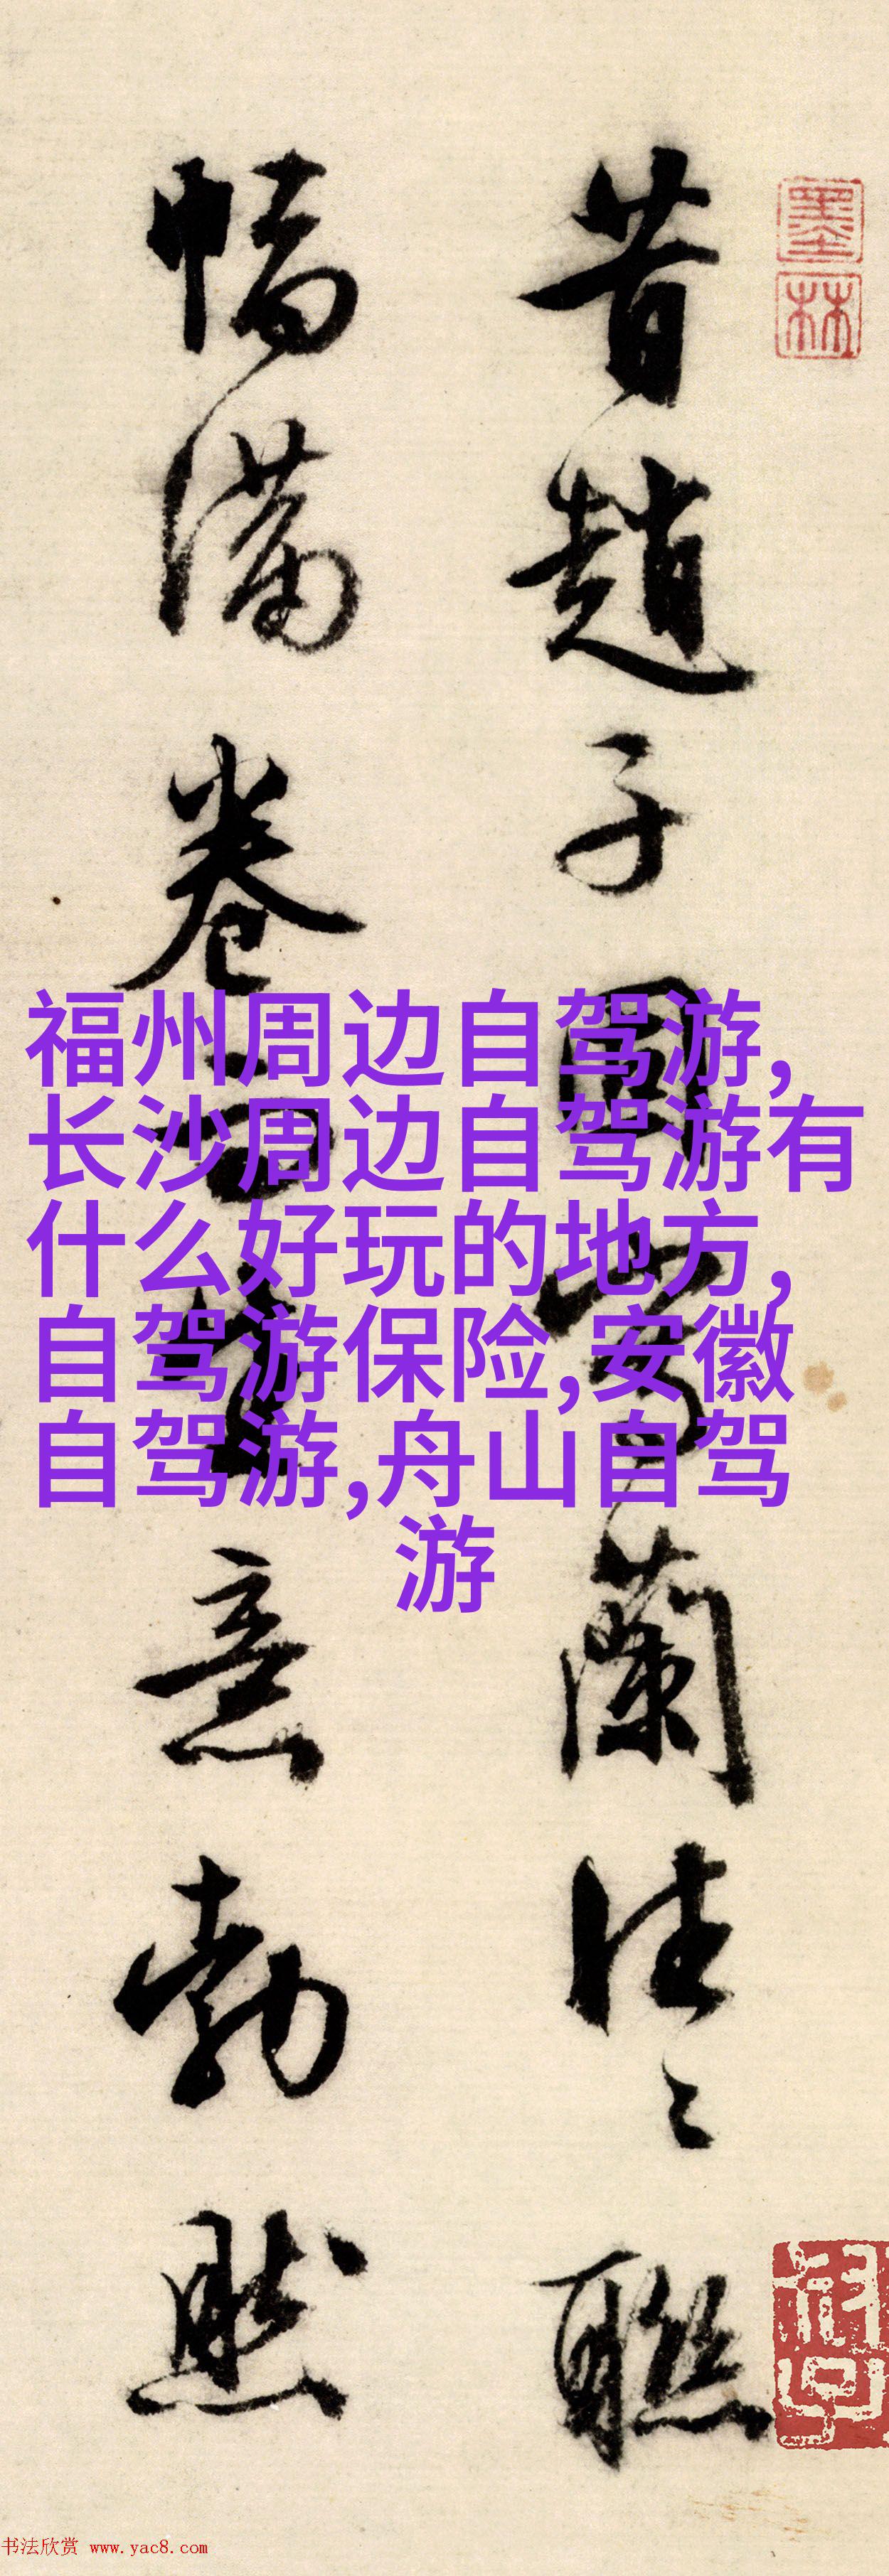 墨
林
昔趙子固寫蘭往々聯
幅滿卷而生意勃然
福州周边自驾游,
长沙周边自驾游有
什么好玩的地方,
自驾游保险,安徽
自驾游,舟山自驾
游
书法欣赏 www.yac8.com